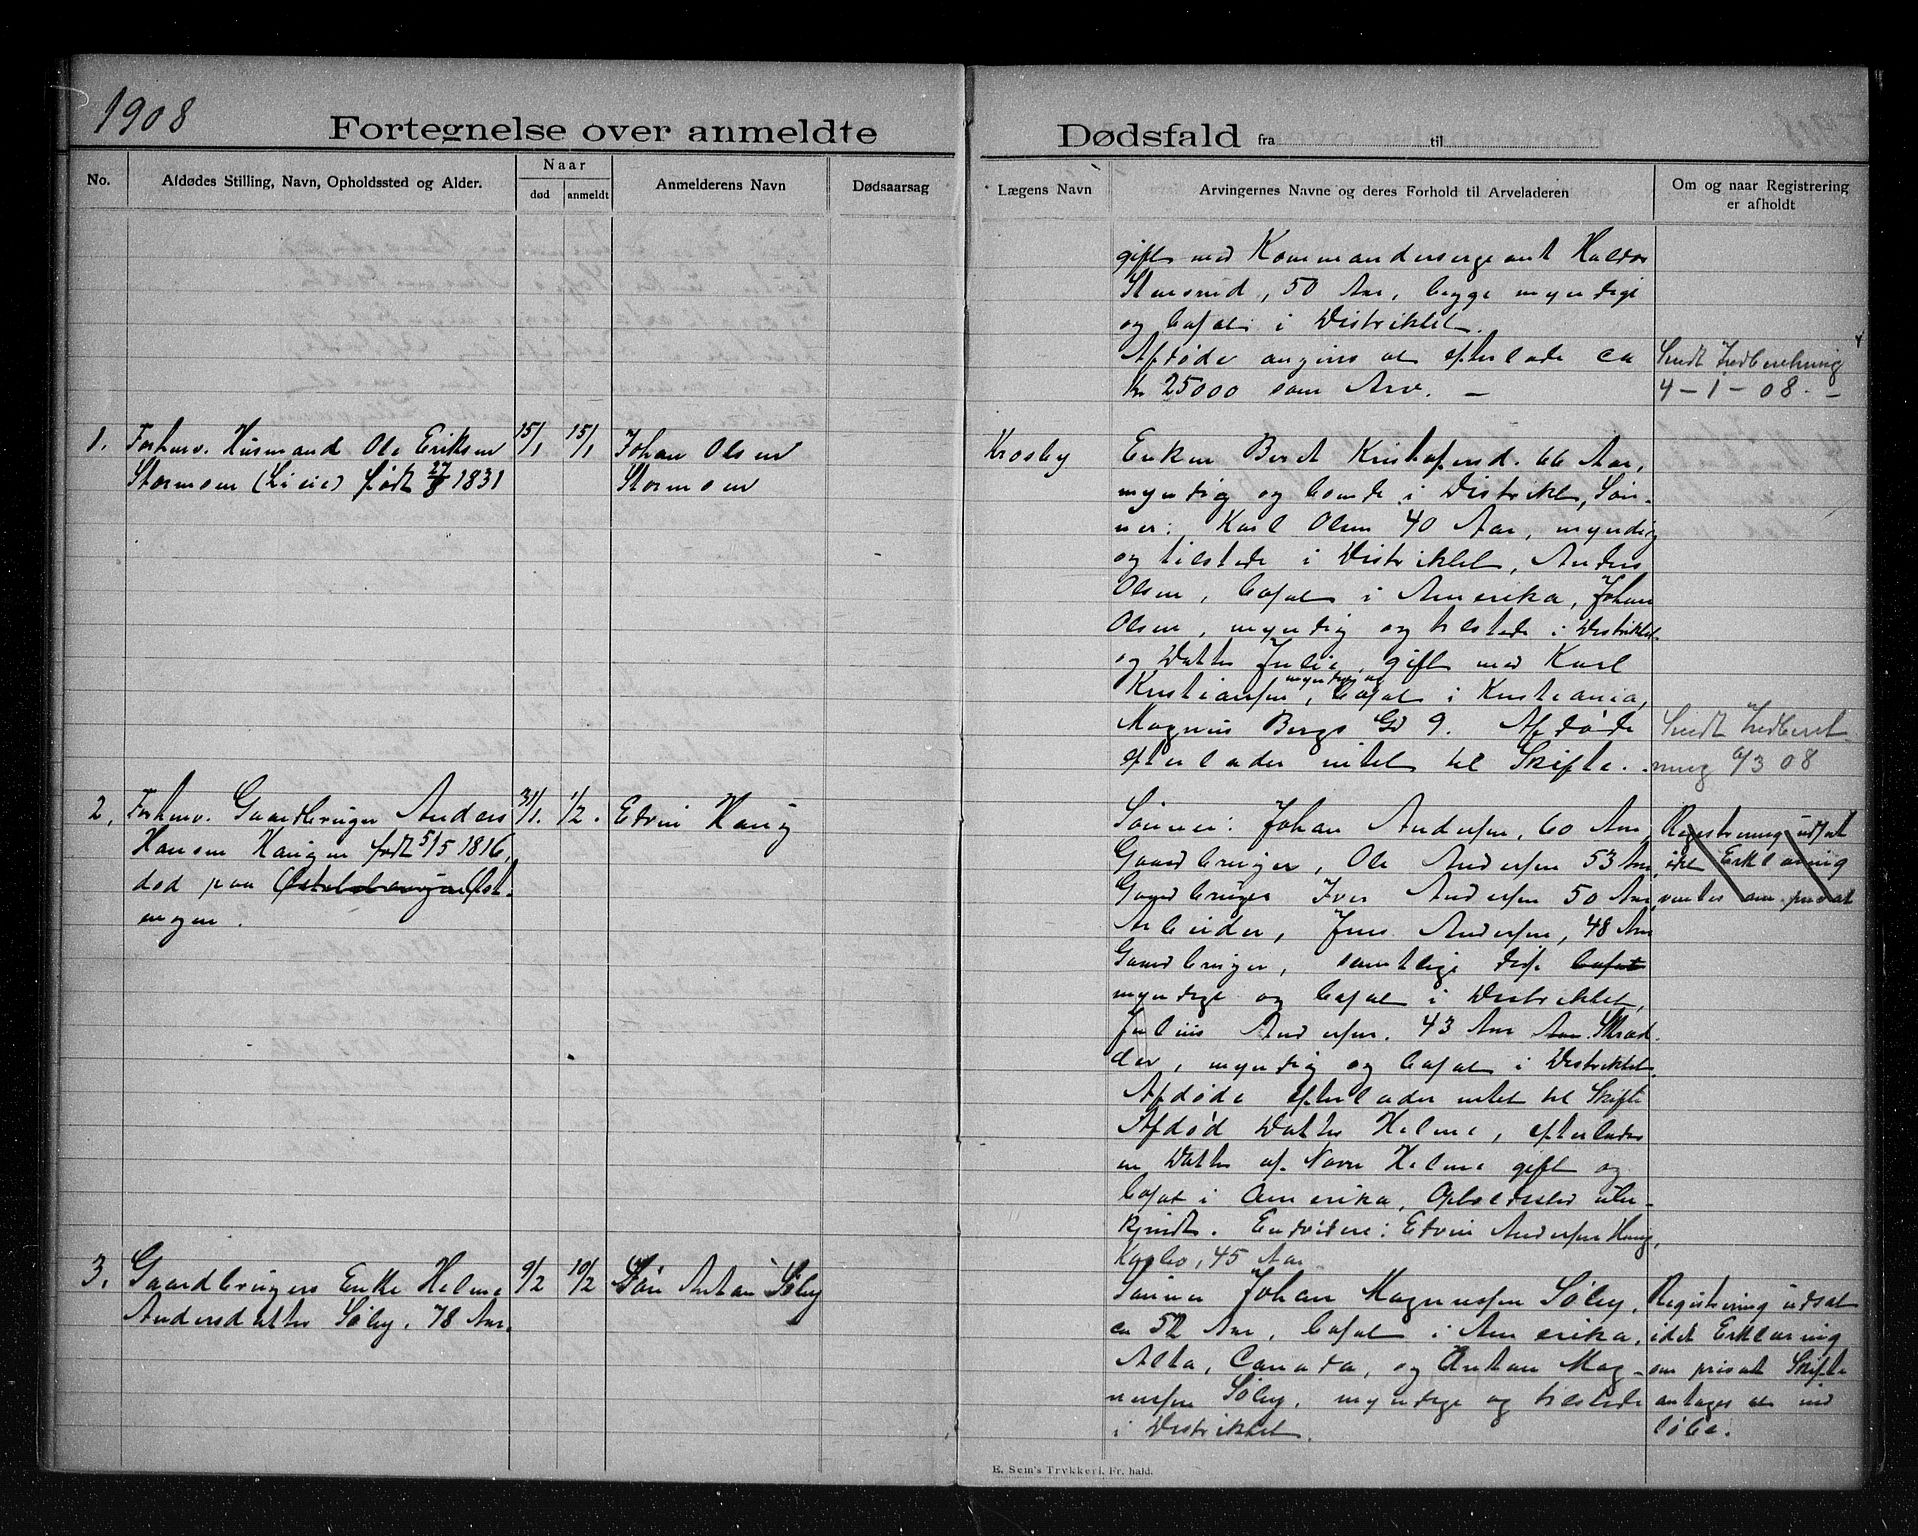 1908
Fortegnelse over anmeldte
Dødsfald fra til
No.
Afdødes Stilling, Navn, Opholdssted og Alder.
Naar
død
anmeldt
Anmelderens Navn
Dødsaarsag
Lægens Navn
Arvingernes Navne og deres Forhold til Arveladeren
Om og naar Registrering
er afholdt
gift med Kommandersergeant Haldor
Stensrud, 50 Aar, begge myndige
og bosat i Distriktet.
Afdøde angives at efterlade ca
kr 25000 som Arv. —
Sendt Indberetning
4-1-08. —
1. Forhenv. Husmand Ole Eriksen
Stormoen (Lieie) født 27/8 1831
15/1
15/1
Johan Olsen
Stormoen
Krosby
Enken Beret Kristofersd. 66 Aar,
myndig og boende i Distriktet, Søn-
ner: Karl Olsen 40 Aar, myndig
og tilstede i Distriktet, Anders
Olsen, bosat i Amerika, Johan
Olsen, myndig og tilstede i Distriktet
og Datter Julie, gift med Karl
Kristiansen, myndig og bosat i Kristiania,
Magnus Bergs Gd 9. Afdøde
efterlader intet til Skifte.
Sendt Indberet-
ning 6/3 08
2. Forhenv. Gaardbruger Anders
Hansen Haugen født 5/5 1816,
død paa Øst-
engen.
31/1.
1/2.
Edvin Haug
Sønner: Johan Andersen, 60 Aar,
Gaardbruger, Ole Andersen 53 Aar,
Gaardbruger Iver Andersen 50 Aar,
Arbeider, Jens Andersen, 48 Aar
Gaardbruger, samtlige disse bosat
myndige og bosat i Distriktet,
Julius Andersen. 43 Aar Aar. Skræd-
der, myndig og bosat i Distriktet.
Afdøde efterlader intet til Skifte
Afdød Datter Helene, efterlader
en Datter af Navn Helene gift og
bosat i Amerika, Opholdssted ube-
kjendt. Endvidere: Edvin Andersen Haug,
45 Aar.
Registrering udsat
idet Erklæring
ventes om privat
3. Gaardbrugers Enke Helene
Andersdatter Søby, 78 Aar.
9/2
10/2
Søn Anton Søby
Sønner Johan Magnussen Søby,
ca 52 Aar, bosat i Amerika,
Alta, Canada, og Anton Mag-
nussen Søby, myndige og tilstede
i Distriktet.
Registrering udsat
idet Erklæring
om privat Skifte
antages at ind
løbe.
E. Sem's Trykkeri, Fr.hald.